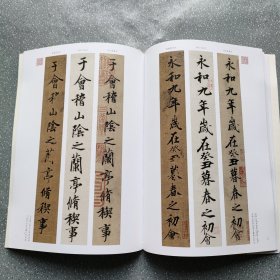 永和九年歲在癸丑暮春之初會
永和九年歲在癸丑暮春之初會
永和九年歲在癸丑暮春之初會
于會稽山陰之蘭亭脩稧事
于會稽山陰之蘭亭脩稧事
于會稽山陰之蘭亭脩稧事